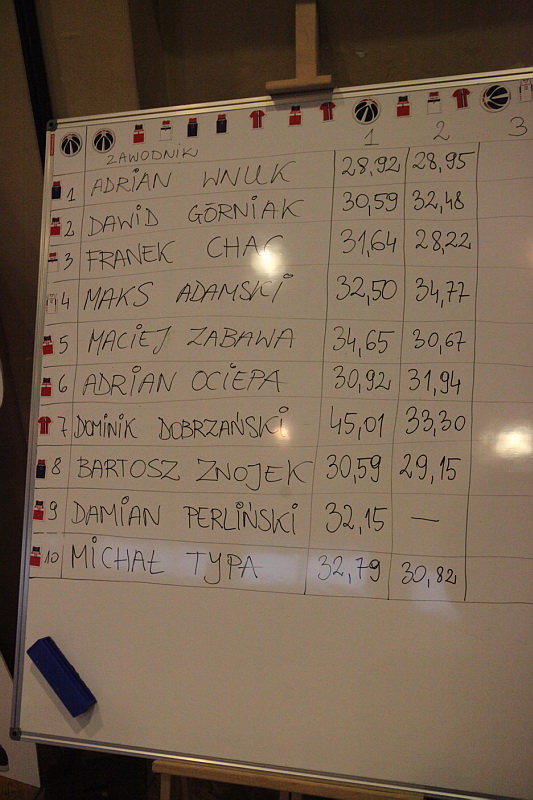 1 2 3
ZAWODNIK
1 ADRIAN WNUK 28,92 28,95
2 DAWID GÓRNIAK 30,59 32,48
3 FRANEK CHAC 31,64 28,22
4 MAKS ADAMSKI 32,50 34,77
5 MACIEJ ZABAWA 34,65 30,67
6 ADRIAN OCIEPA 30,92 31,94
7 DOMINIK DOBRZAŃSKI 45,01 33,30
8 BARTOSZ ZNOJEK 30,59 29,15
9 DAMIAN PERLIŃSKI 32,15 —
10 MICHAŁ TYPA 32,79 30,82